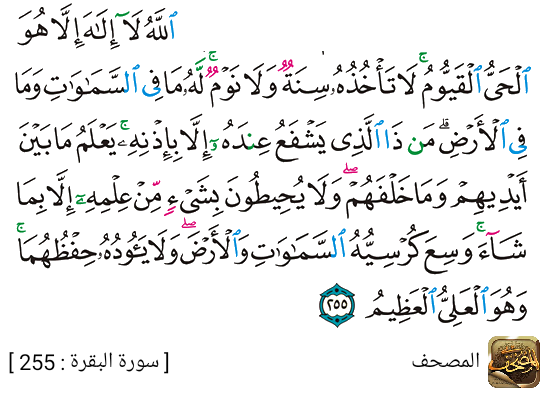 ٱللَّهُ لَآ إِلَٰهَ إِلَّا هُوَ
ٱلْحَىُّ ٱلْقَيُّومُ ۚ لَا تَأْخُذُهُۥ سِنَةٌ وَلَا نَوْمٌ ۚ لَّهُۥ مَا فِى ٱلسَّمَٰوَٰتِ وَمَا
فِى ٱلْأَرْضِ ۗ مَن ذَا ٱلَّذِى يَشْفَعُ عِندَهُۥٓ إِلَّا بِإِذْنِهِۦ ۚ يَعْلَمُ مَا بَيْنَ
أَيْدِيهِمْ وَمَا خَلْفَهُمْ ۖ وَلَا يُحِيطُونَ بِشَىْءٍ مِّنْ عِلْمِهِۦٓ إِلَّا بِمَا
شَآءَ ۚ وَسِعَ كُرْسِيُّهُ ٱلسَّمَٰوَٰتِ وَٱلْأَرْضَ ۖ وَلَا يَـُٔودُهُۥ حِفْظُهُمَا ۚ
وَهُوَ ٱلْعَلِىُّ ٱلْعَظِيمُ ٢٥٥
المصحف [ سورة البقرة : 255 ]